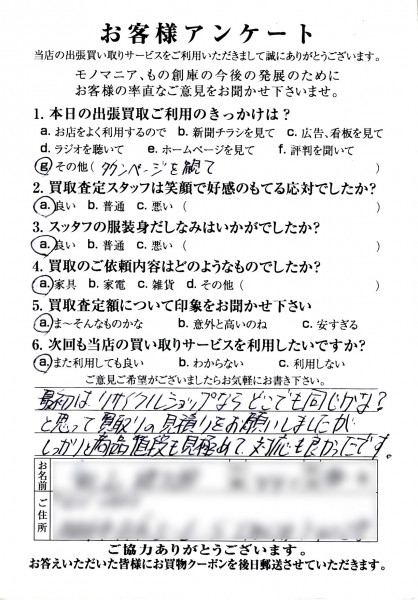 お客様アンケート
当店の出張買い取りサービスをご利用いただきまして誠にありがとうございます。
モノマニア、もの創庫の今後の発展のために
お客様の率直なご意見をお聞かせ下さいませ。
1. 本日の出張買取ご利用のきっかけは?
a. お店をよく利用するので b. 新聞チラシを見て c. 広告、看板を見て
d. ラジオを聴いて e. ホームページを見て f. 評判を聞いて
g. その他( タウンページを観て )
2. 買取査定スタッフは笑顔で好感のもてる応対でしたか?
a. 良い b. 普通 c. 悪い ( )
3. スッタフの服装身だしなみはいかがでしたか?
a. 良い b. 普通 c. 悪い ( )
4. 買取のご依頼内容はどのようなものでしたか?
a. 家具 b. 家電 c. 雑貨 d. その他 ( )
5. 買取査定額について印象をお聞かせ下さい
a. ま〜そんなものかな b. 意外と高いのね c. 安すぎる
6. 次回も当店の買い取りサービスを利用したいですか?
a. また利用しても良い b. わからない c. 利用しない
ご意見ご希望がございましたらお気軽にお書き下さい。
最初はリサイクルショップならどこでも同じかな?
と思って買取りの見積りをお願いしましたが
しっかりと商品値段も見極めて、対応も良かったです。
お名前
ご住所
ご協力ありがとうございます。
お答えいただいた皆様にお買物クーポンを後日郵送させていただきます。